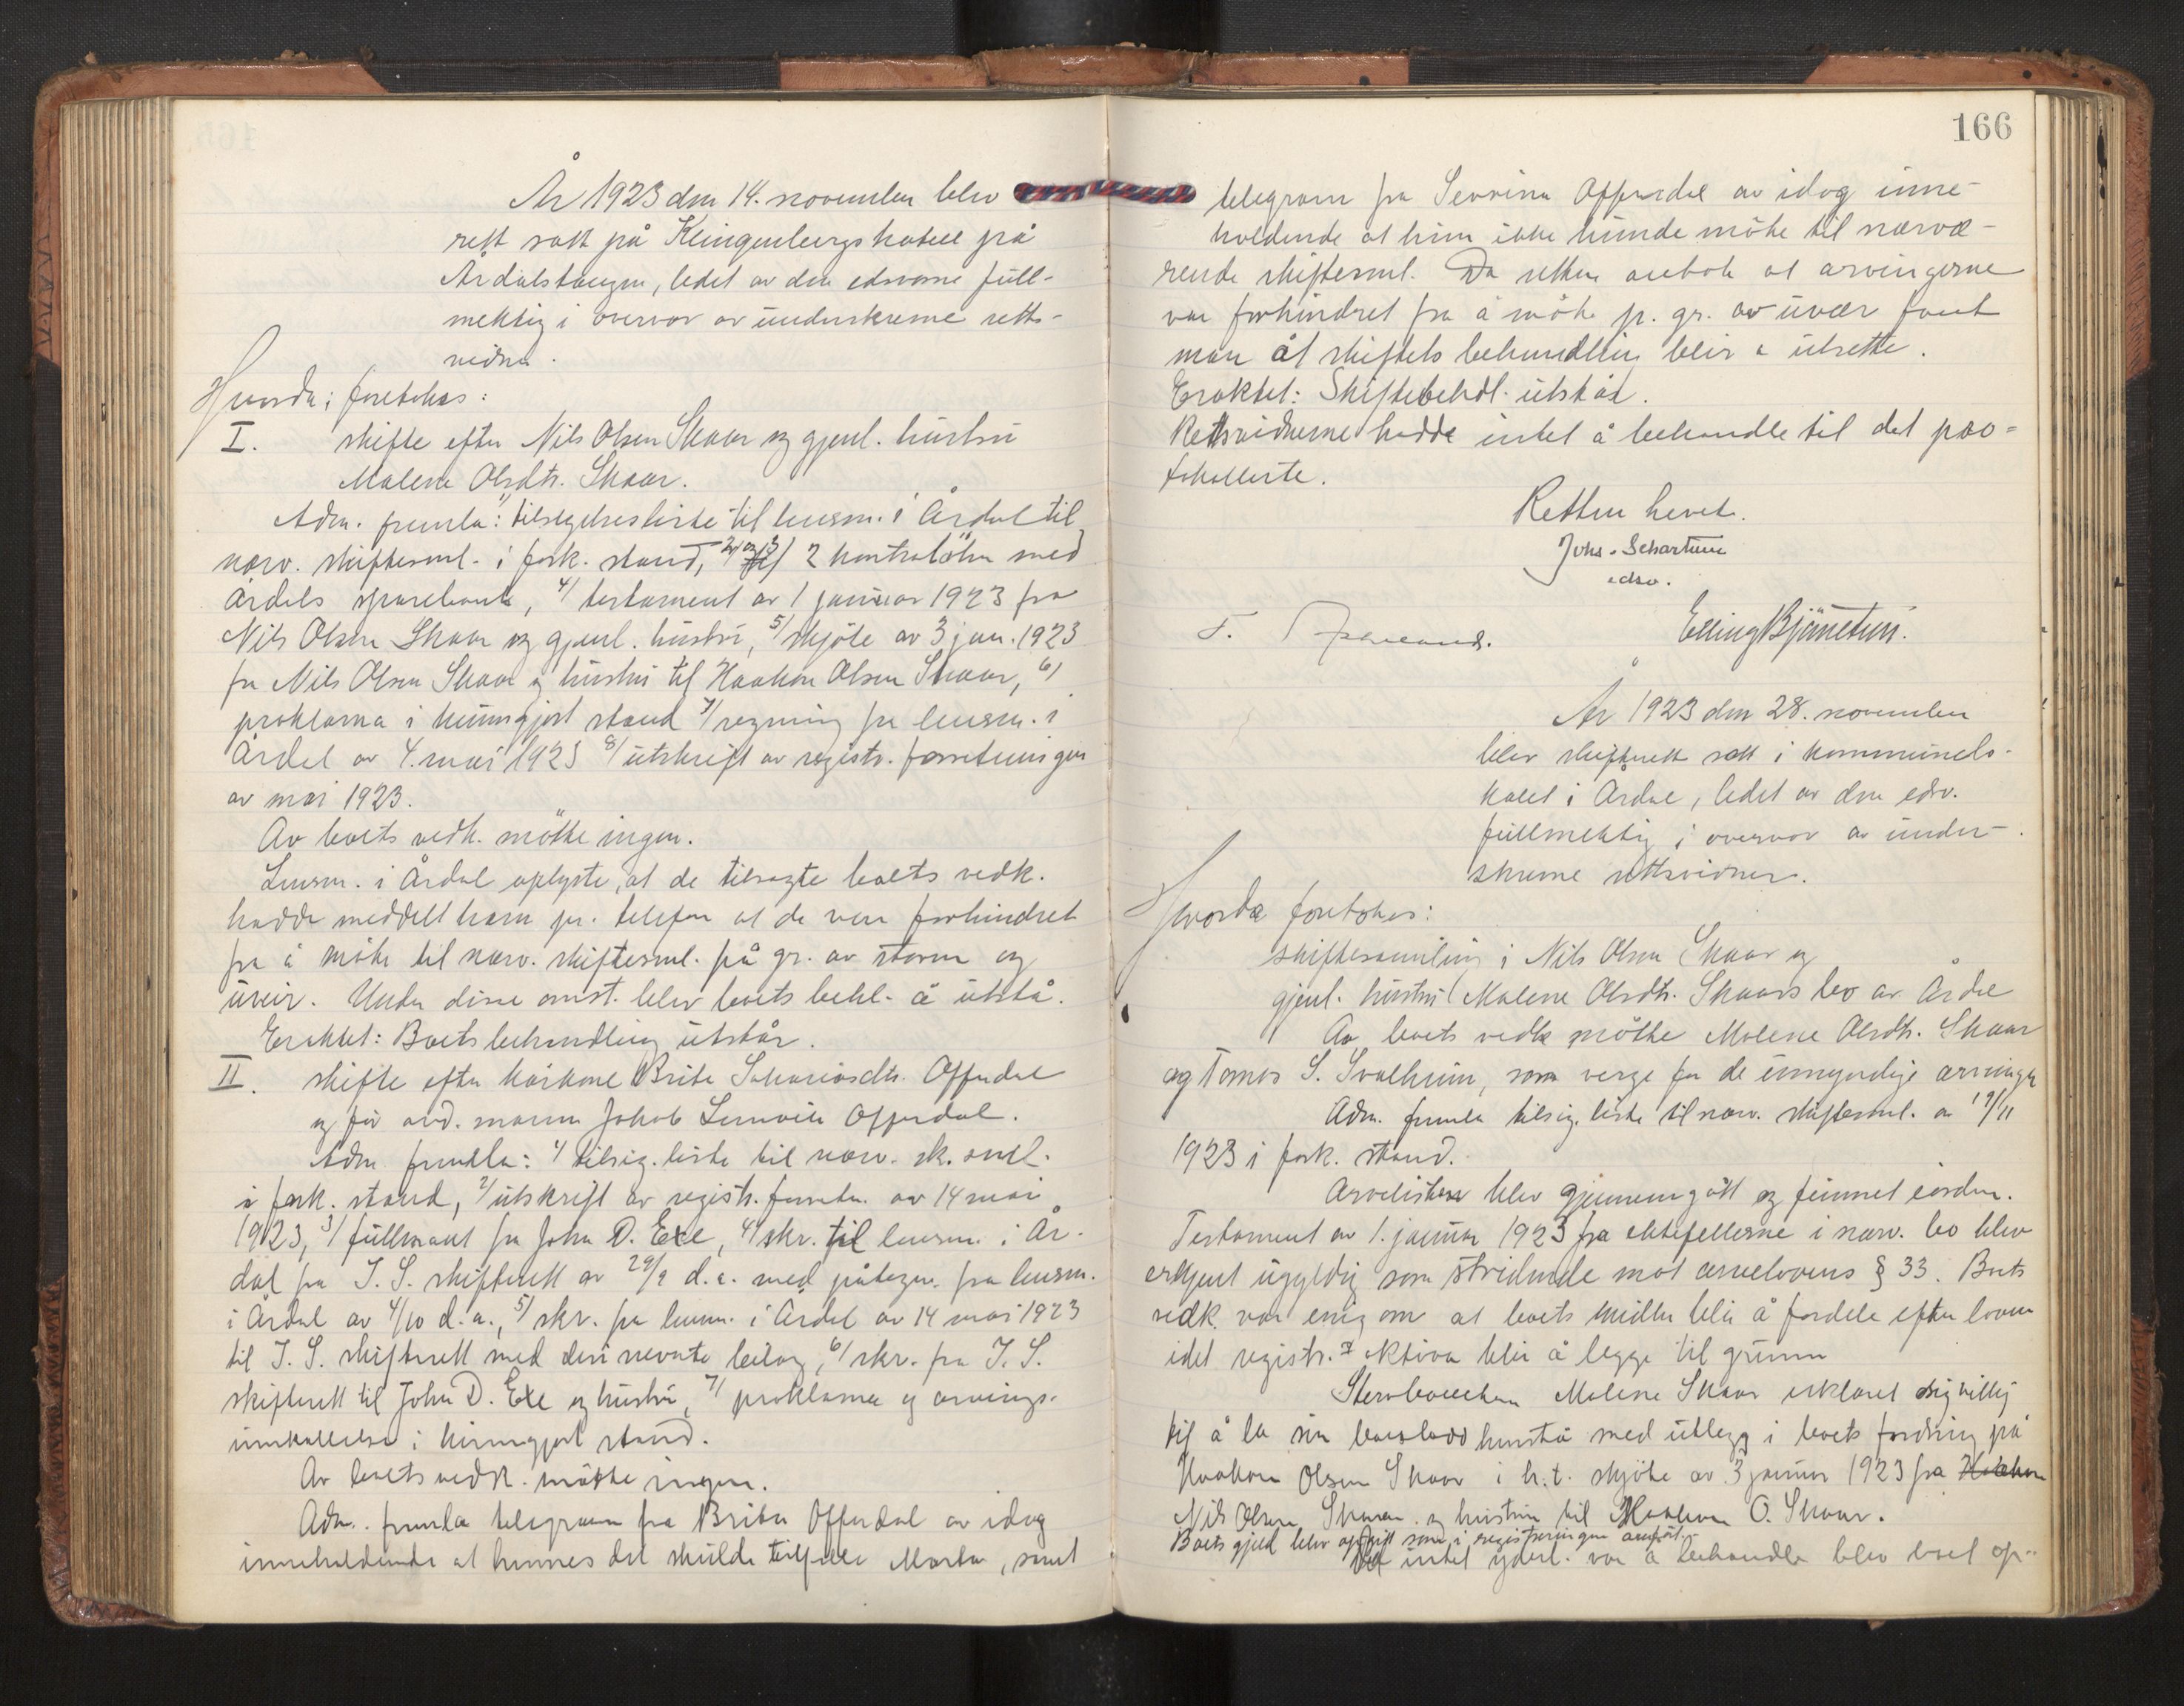 År 1923 den 14. november blev
rett satt på Klingenbergs hotell på
Årdalstangen, ledet av den edsvorne full-
mektig i overvær av underskrevne retts-
vidner.
Hvorda foretokes:
I. skifte efter Nils Olsen Skaar og gjenl. hustru
Malene Olsdtr. Skaar.
Adm. fremla: tilsigelsesliste til lensm. i Årdal til
nærv. skiftesml. i fork. stand, 2/ og 3/ 2 kontrabøker med
Årdals sparebank, 4/ testament av 1 januar 1923 fra
Nils Olsen Skaar og gjenl. hustru, 5/ skjöte av 3 jan. 1923
fra Nils Olsen Skaar og hustru til Haakon Olsen Skaar, 6/
proklama i kunngjort stand 7/ regning fra lensm. i
Årdal av 4. mai 1923 8/ utskrift av registr. forretningen
av mai 1923.
Av boets vedk. mötte ingen.
Lensm. i Årdal oplyste, at de tilsagte boets vedk.
hadde meddelt ham pr. telefon at de var forhindret
fra å möte til nærv. skiftesml. på gr. av storm og
uveir. Under disse omst. blev boets behl. å utstå.
Eraktet: Boets behandling utstår.
II. skifte efter kårkone Brita Sakariasdtr. Offerdal
og för avd. mann Jakob Offerdal.
Adm. fremla: 1/ tilsig. liste til nærv. sk. sml.
i fork. stand, 2/ utskrift av registr. forretn. av 14 mai
1923, 3/ fullmakt fra John D. Exe, 4/ skr. til lensm. i År-
dal fra I. S. skifterett av 29/9 d.a. med påtegn. fra lensm.
i Årdal av 4/10 d.a., 5/ skr. fra lensm. i Årdal av 14 mai 1923
til I. S. skifterett med deri nevnte bilag, 6/ skr. fra I. S.
skifterett til John D. Exe og hustru, 7/ proklama og arvings-
innkallelse i kunngjort stand.
Av boets vedk. mötte ingen.
Adm. fremla telegram fra Brita Offerdal av idag
inneholdende at hennes del skulde tilfalle Marta, samt
166
telegram fra Severina Offerdal av idag inne-
holdende at hun ikke kunde möte til nærvæ-
rende skiftesml. Da retten antok at arvingerne
var forhindret fra å möte p. gr. av uvær fant
man at skiftets behandling blir å utsette.
Eraktet: Skiftebehdl. utstår.
Rettsvidnerne hadde intet å behandle til det pro-
tokollerte.
Retten hevet.
Johs. Schartum
edsv.
Elling Bjänetun.
År 1923 den 28. november
blev skifterett satt i kommunelo-
kalet i Årdal, ledet av den edsv.
fullmektig i overvær av under-
skrevne rettsvidner.
Hvorda foretokes:
skiftesamling i Nils Olsen Skaar og
gjenl. hustru Malene Olsdtr. Skaars bo av Årdal
Av boets vedk. mötte Malene Olsdtr. Skaar
og Tomas S. Svalheim, som verge for de umyndige arvinger
Adm. fremla tilsig. liste til nærv. skiftesml. av 19/11
1923 i fork. stand.
Arvelisten blev gjennemgått og funnet iorden.
Testament av 1. januar 1923 fra ektefellerne i nærv. bo blev
erkjent ugyldig som stridende mot arvelovens § 33. Boets
vedk. var enig om at boets midler blir å fordele efter loven
idet registr. aktiva blir å legge til grunn
Malene Skaar erklæret sig villig
til å la sin boeslodd henstå med utlegg i boets fordring på
Haakon Olsen Skaar i h.t. skjöte av 3 januar 1923 fra Haakon
Nils Olsen Skaar og hustru til Haakon O. Skaar.
Boets gjeld blev opgitt som i registreringen anfört.
Da intet yderl. var å behandle blev boet op-